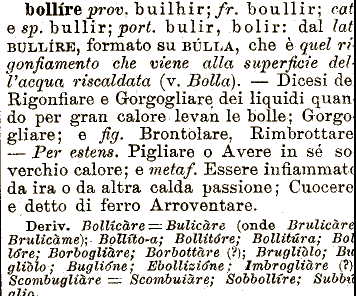 bollíre prov. builhir; fr. boullir; cat
e sp. bullir; port. bulir, bolir: dal lat
BULLÍRE, formato su BÚLLA, che è quel ri
gonfiamento che viene alla superficie del-
l'acqua riscaldata (v. Bolla). — Dicesi de
Rigonfiare e Gorgogliare dei liquidi quan-
do per gran calore levan le bolle; Gorgo-
gliare; e fig. Brontolare, Rimbrottare
— Per estens. Pigliare o Avere in sé so
verchio calore; e metaf. Essere infiammato
da ira o da altra calda passione; Cuocere
e detto di ferro Arroventare.
Deriv. Bollicàre = Bulicàre (onde Brulicàre
Brulicàme); Bollíto-a; Bollitóre; Bollitúra; Bol
lóre; Borbogliàre; Borbottàre (?); Brugliòlo; Bu
gliòlo; Buglióne; Ebollizióne; Imbrogliàre (?)
Scombugliàre = Scombuiàre; Sobbollíre; Subbu
glio.